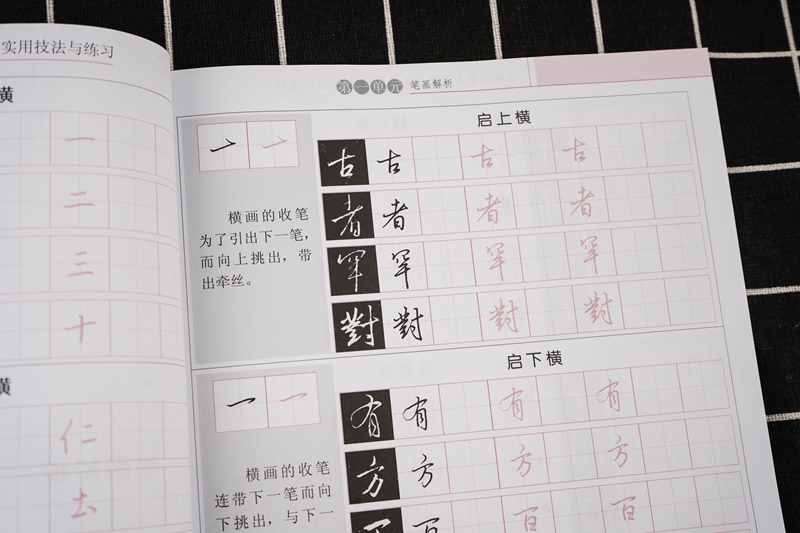 实用技法与练习
横
一
二
三
十
横
仁
土
第一单元 笔画解析
启上横
横画的收笔
为了引出下一笔，
而向上挑出，带
出牵丝。
古 古 古 古
者 者 者 者
罕 罕 罕 罕
對 對 對 對
启下横
一 一
横画的收笔
连带下一笔而向
下挑出，与下一
有 有 有 有
方 方 方 方
百 百 百 百